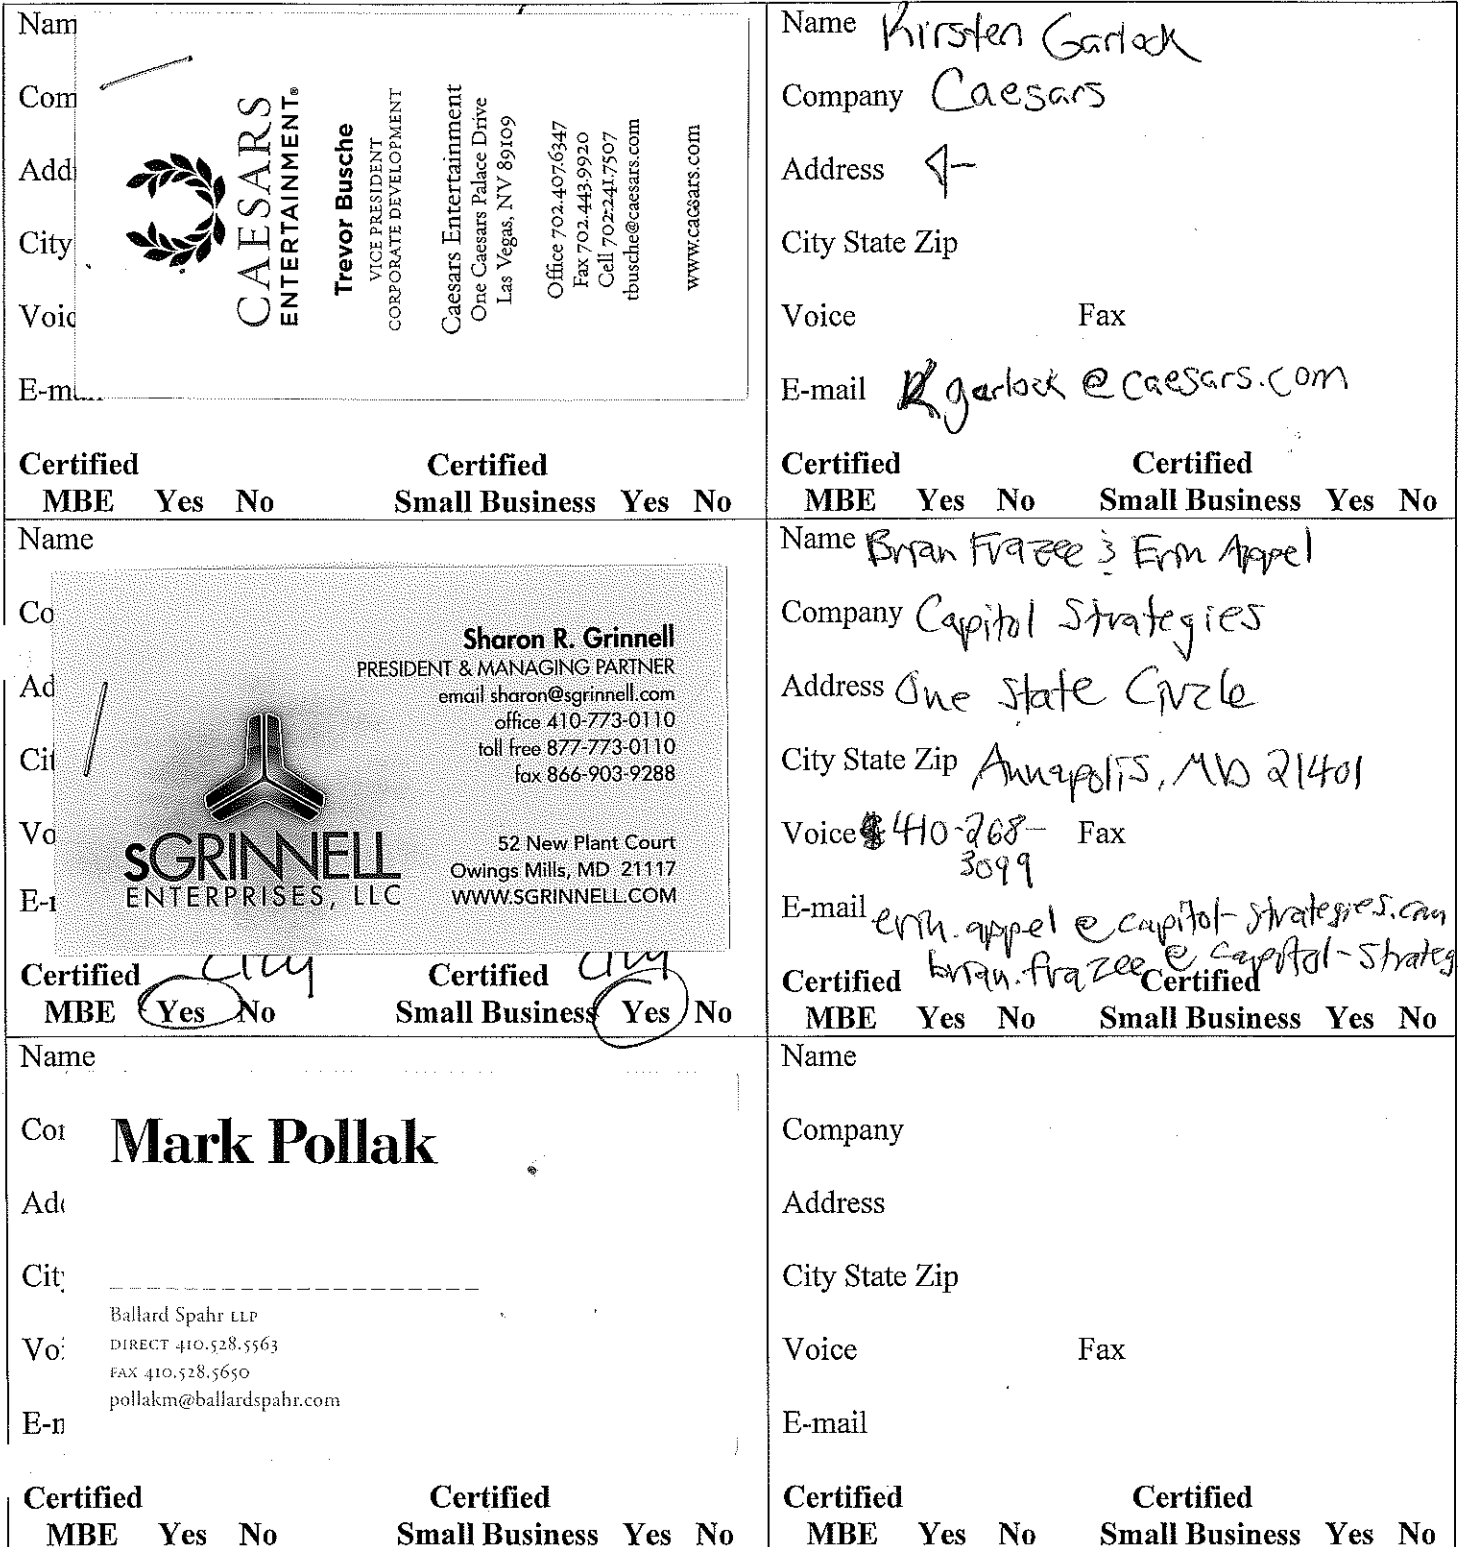 Nam
Com
Addr
City
Voic
E-m
CAESARS
ENTERTAINMENT®
Trevor Busche
VICE PRESIDENT
CORPORATE DEVELOPMENT
Caesars Entertainment
One Caesars Palace Drive
Las Vegas, NV 89109
Office 702.407.6347
Fax 702.443.9920
Cell 702.241.7507
tbusche@caesars.com
www.caesars.com
Certified Certified
MBE Yes No Small Business Yes No
Name Kirsten Garlock
Company Caesars
Address
City State Zip
Voice Fax
E-mail kgarlock@caesars.com
Certified Certified
MBE Yes No Small Business Yes No
Name
Co
Ad
Cit
Vo
E-r
Sharon R. Grinnell
PRESIDENT & MANAGING PARTNER
email sharon@sgrinnell.com
office 410-773-0110
toll free 877-773-0110
fax 866-903-9288
SGRINNELL
ENTERPRISES, LLC
52 New Plant Court
Owings Mills, MD 21117
WWW.SGRINNELL.COM
Certified City Certified City
MBE Yes No Small Business Yes No
Name Brian Frazee & Erin Appel
Company Capitol Strategies
Address One State Circle
City State Zip Annapolis, MD 21401
Voice 410-268- Fax
3099
E-mail erin.appel@capitol-strategies.com
brian.frazee@capitol-strateg
Certified Certified
MBE Yes No Small Business Yes No
Name
Co
Add
City
Voi
E-n
Mark Pollak
Ballard Spahr LLP
DIRECT 410.528.5563
FAX 410.528.5650
pollakm@ballardspahr.com
Certified Certified
MBE Yes No Small Business Yes No
Name
Company
Address
City State Zip
Voice Fax
E-mail
Certified Certified
MBE Yes No Small Business Yes No